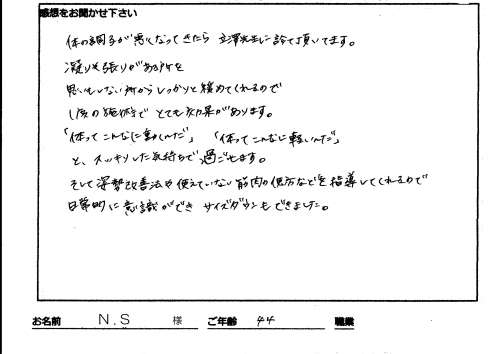 感想をお聞かせ下さい
体の調子が悪くなってきたら 立澤先生に診て頂いてます。
凝りや張りがある所を
思いもしない所からしっかりと緩めてくれるので
1度の施術でとても効果があります。
「体ってこんなに動くんだ」 「体ってこんなに軽いんだ」
と、スッキリした気持ちで過ごせます。
そして姿勢改善法や使えていない筋肉の使い方などを指導してくれるので
日常的に意識ができ サイズダウンもできました。
お名前 N.S 様 ご年齢 44 職業